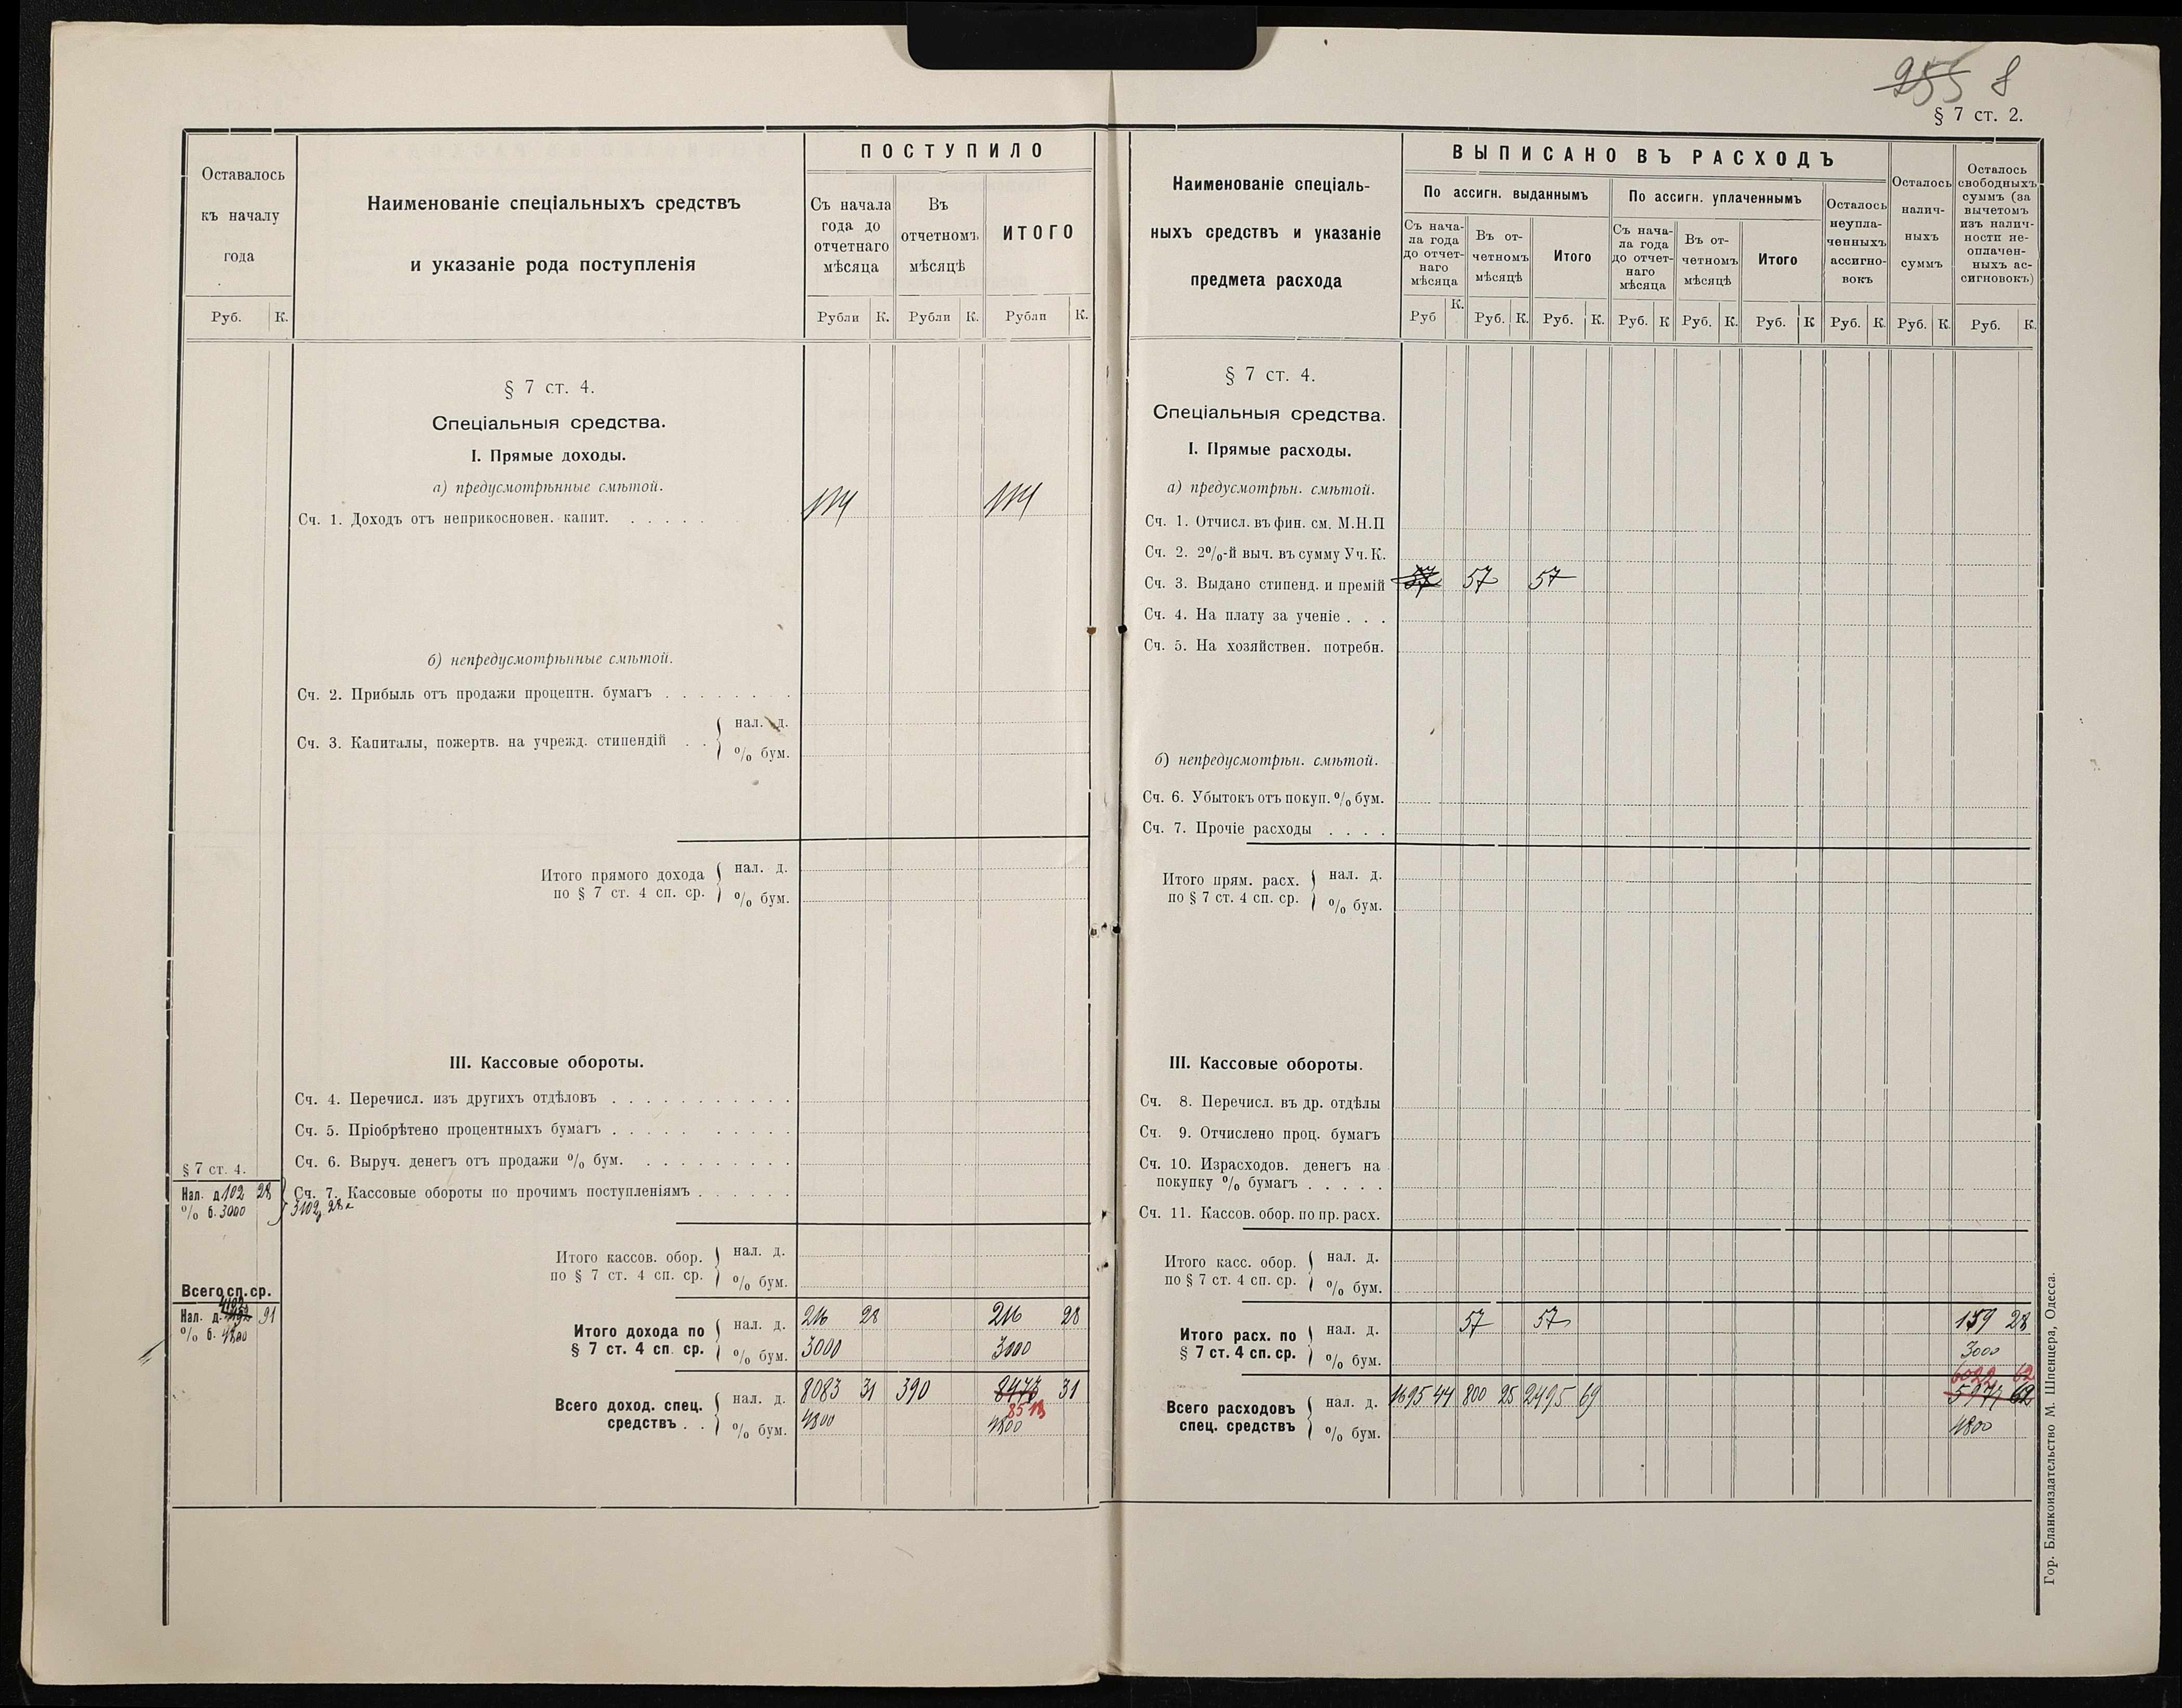 255 8
§ 7 ст. 2.
Оставалось
къ началу
года
Руб. К.
Наименованіе спеціальныхъ средствъ
и указаніе рода поступленія
ПОСТУПИЛО
Съ начала
года до
отчетнаго
мѣсяца
Въ
отчетномъ
мѣсяцѣ
ИТОГО
Рубли К. Рубли К. Рубли К.
§ 7 ст. 4.
Спеціальныя средства.
I. Прямые доходы.
а) предусмотрѣнные смѣтой.
Сч. 1. Доходъ отъ неприкосновен. капит. . . . . . 114 114
б) непредусмотрѣнные смѣтой.
Сч. 2. Прибыль отъ продажи процентн. бумагъ . . . . . . . .
Сч. 3. Капиталы, пожертв. на учрежд. стипендій . .
нал. д.
% бум.
Итого прямого дохода
по § 7 ст. 4 сп. ср.
нал. д.
% бум.
III. Кассовые обороты.
Сч. 4. Перечисл. изъ другихъ отдѣловъ . . . . . . . . . . .
Сч. 5. Пріобрѣтено процентныхъ бумагъ . . . . . . . . . .
Сч. 6. Выруч. денегъ отъ продажи % бум. . . . . . . . . .
§ 7 ст. 4.
Нал. д. 102 28
% б. 3000
Сч. 7. Кассовые обороты по прочимъ поступленіямъ . . . . . .
3102 р. 28 к
Итого кассов. обор.
по § 7 ст. 4 сп. ср.
нал. д.
% бум.
Всего сп. ср.
Нал. д. 91
% б. 4800
Итого дохода по
§ 7 ст. 4 сп. ср.
нал. д. 216 28 216 28
% бум. 3000 3000
Всего доход. спец.
средствъ . .
нал. д. 8083 31 390 8473 31
85 13
% бум. 4800 4800
Наименованіе спеціаль-
ныхъ средствъ и указаніе
предмета расхода
ВЫПИСАНО ВЪ РАСХОДЪ
По ассигн. выданнымъ
Съ нача-
ла года
до отчет-
наго
мѣсяца
Въ от-
четномъ
мѣсяцѣ
Итого
По ассигн. уплаченнымъ
Съ нача-
ла года
до отчет-
наго
мѣсяца
Въ от-
четномъ
мѣсяцѣ
Итого
Осталось
неупла-
ченныхъ
ассигно-
вокъ
Осталось
налич-
ныхъ
суммъ
Осталось
свободныхъ
суммъ (за
вычетомъ
изъ налич-
ности не-
оплачен-
ныхъ ас-
сигновокъ)
Руб К. Руб. К. Руб. К. Руб. К Руб. К. Руб. К Руб. К. Руб. К. Руб. К.
§ 7 ст. 4.
Спеціальныя средства.
I. Прямые расходы.
а) предусмотрѣн. смѣтой.
Сч. 1. Отчисл. въ фин. см. М.Н.П
Сч. 2. 2%-й выч. въ сумму Уч. К.
Сч. 3. Выдано стипенд. и премій 57 57 57
Сч. 4. На плату за ученіе . . .
Сч. 5. На хозяйствен. потребн.
б) непредусмотрѣн. смѣтой.
Сч. 6. Убытокъ отъ покуп. % бум.
Сч. 7. Прочіе расходы . . . .
Итого прям. расх.
по § 7 ст. 4 сп. ср.
нал. д.
% бум.
III. Кассовые обороты.
Сч. 8. Перечисл. въ др. отдѣлы
Сч. 9. Отчислено проц. бумагъ
Сч. 10. Израсходов. денегъ на
покупку % бумагъ . . . . .
Сч. 11. Кассов. обор. по пр. расх.
Итого касс. обор.
по § 7 ст. 4 сп. ср.
нал. д.
% бум.
Итого расх. по
§ 7 ст. 4 сп. ср.
нал. д. 57 57 159 28
% бум. 3000
6022 62
Всего расходовъ
спец. средствъ
нал. д. 1695 44 800 25 2495 69 5977 62
% бум. 4800
Гор. Бланкоиздательство М. Шпенцера, Одесса.